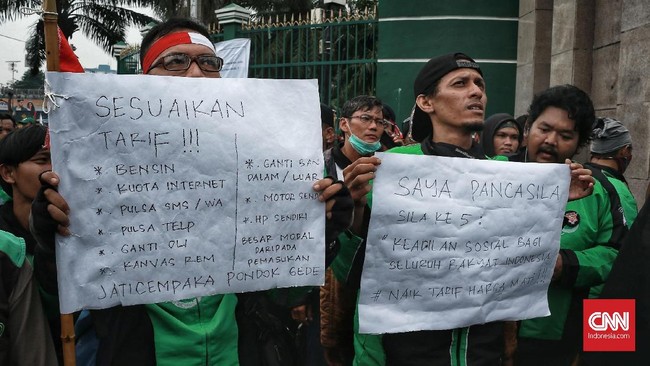 SESUAIKAN
TARIF !!!
* BENSIN
* KUOTA INTERNET
* PULSA SMS / WA
* PULSA TELP
* GANTI OLI
* KANVAS REM
*. GANTI BAN
DALAM / LUAR
*. MOTOR SENDI
*. HP SENDIRI
BESAR MODAL
DARIPADA
PEMASUKAN
JATICEMPAKA PONDOK GEDE
SAYA PANCASILA
SILA KE 5 :
"KEADILAN SOSIAL BAGI
SELURUH RAKYAT INDONESIA
# NAIK TARIF HARGA MATI !!
CNN
Indonesia.com